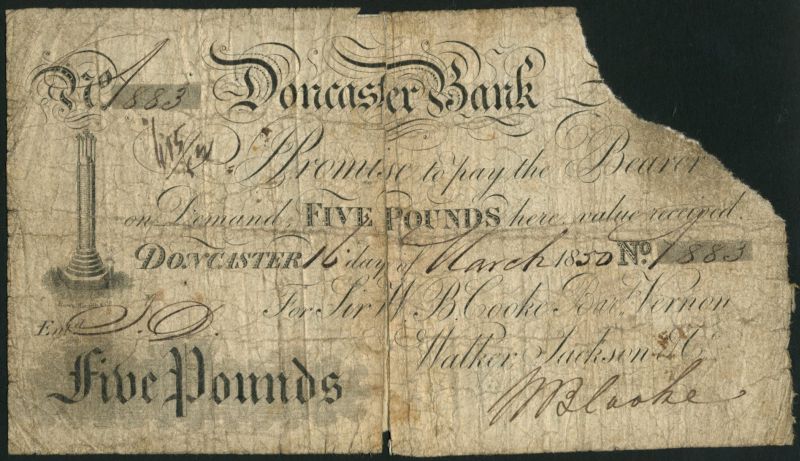 No. 1883 Doncaster Bank
I Promise to pay the Bearer
on Demand, FIVE POUNDS here, value received
DONCASTER 16 day of March 1850 No. 1883
For Sir W. B. Cooke Bart. Vernon
Walker Jackson & Co.
Entd. J. D.
Five Pounds
WB Cooke